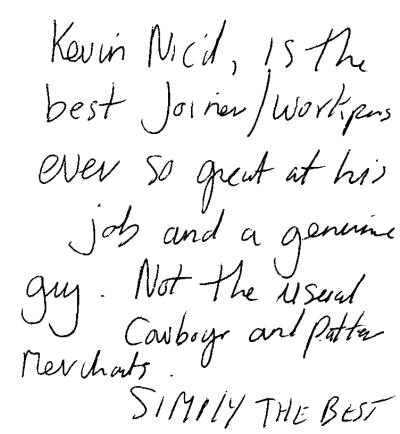 Kevin Nicol, is the
best Joiner/Workpers
ever so great at his
job and a genuine
guy. Not the usual
Cowboys and Patter
Merchants.
SIMPLY THE BEST